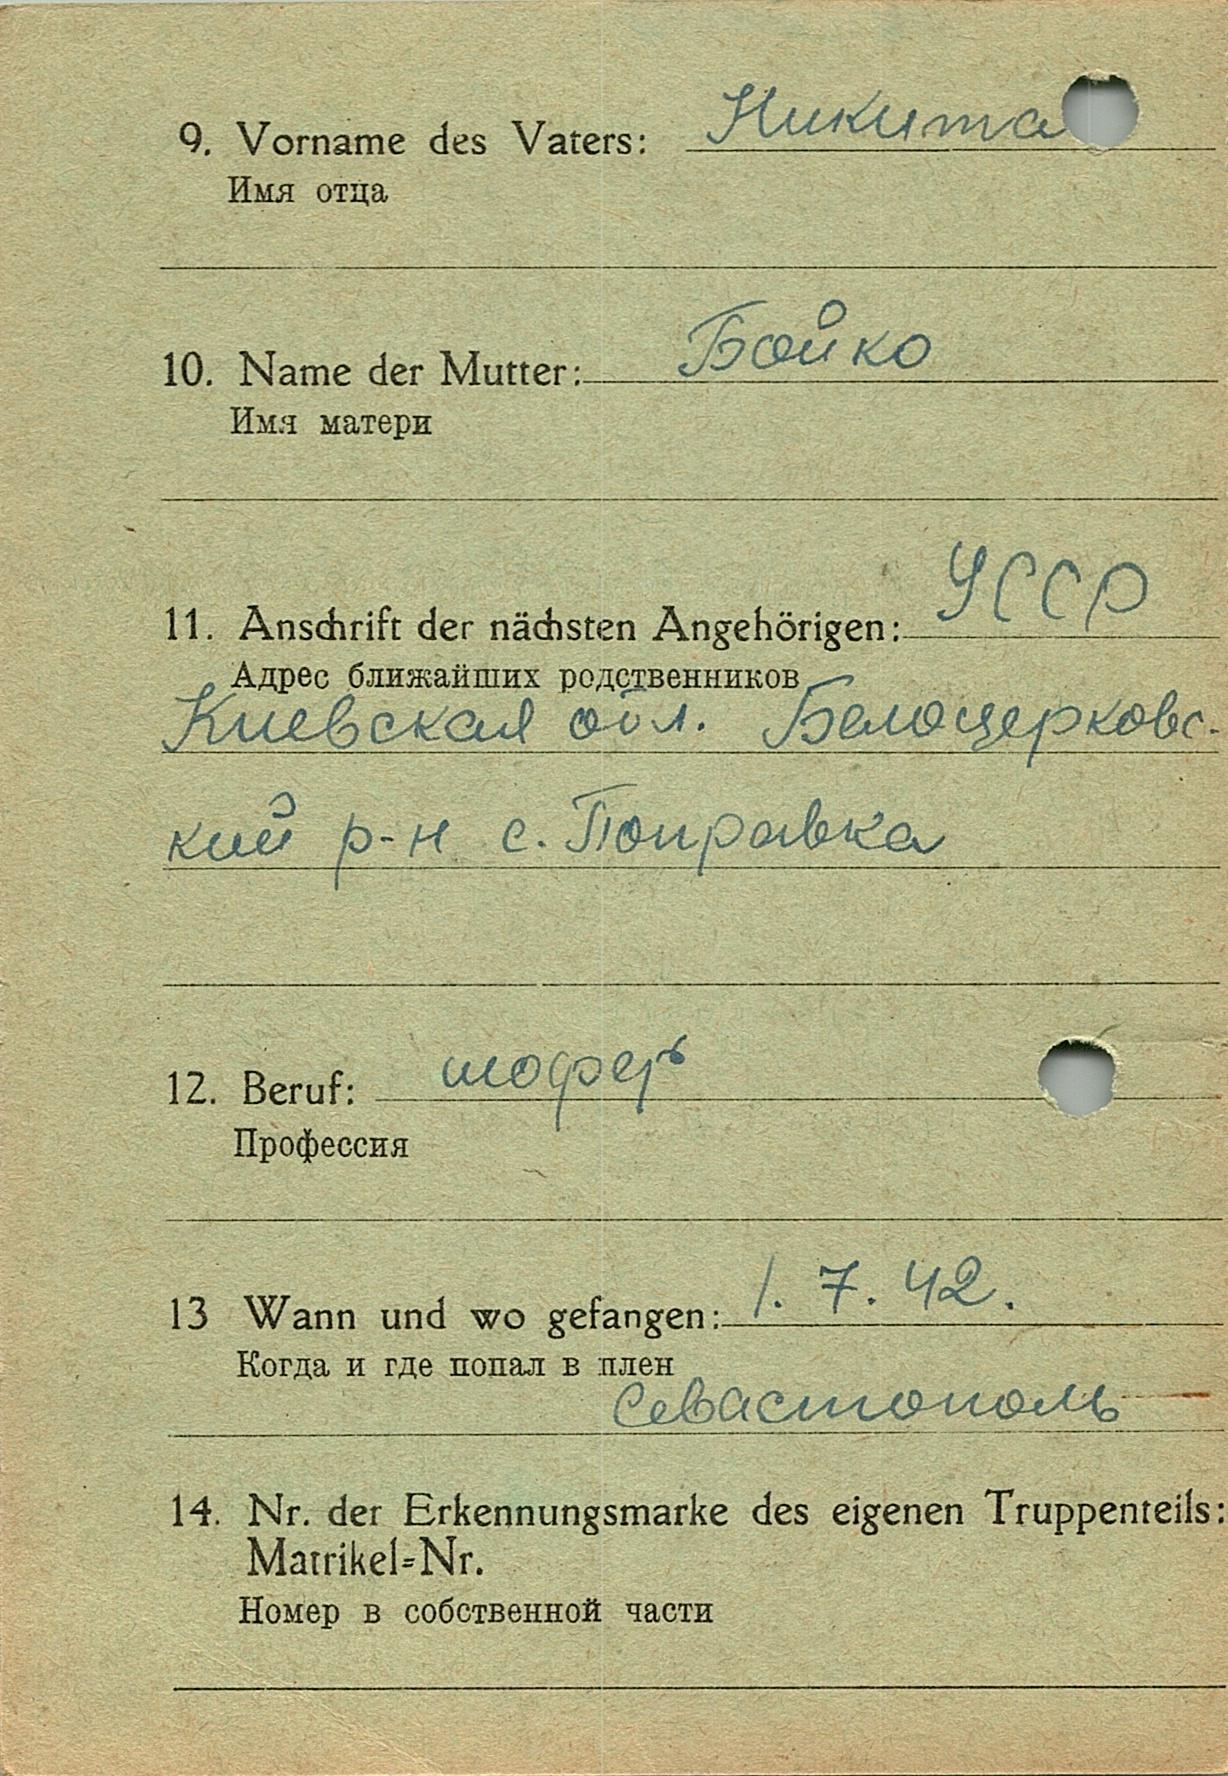 9. Vorname des Vaters: Никита
Имя отца
10. Name der Mutter: Бойко
Имя матери
11. Anschrift der nächsten Angehörigen: УССР
Адрес ближайших родственников
Киевская обл. Белоцерковс-
кий р-н с. Поправка
12. Beruf: шофер
Профессия
13 Wann und wo gefangen: 1. 7. 42.
Когда и где попал в плен
Севастополь
14. Nr. der Erkennungsmarke des eigenen Truppenteils:
Matrikel=Nr.
Номер в собственной части